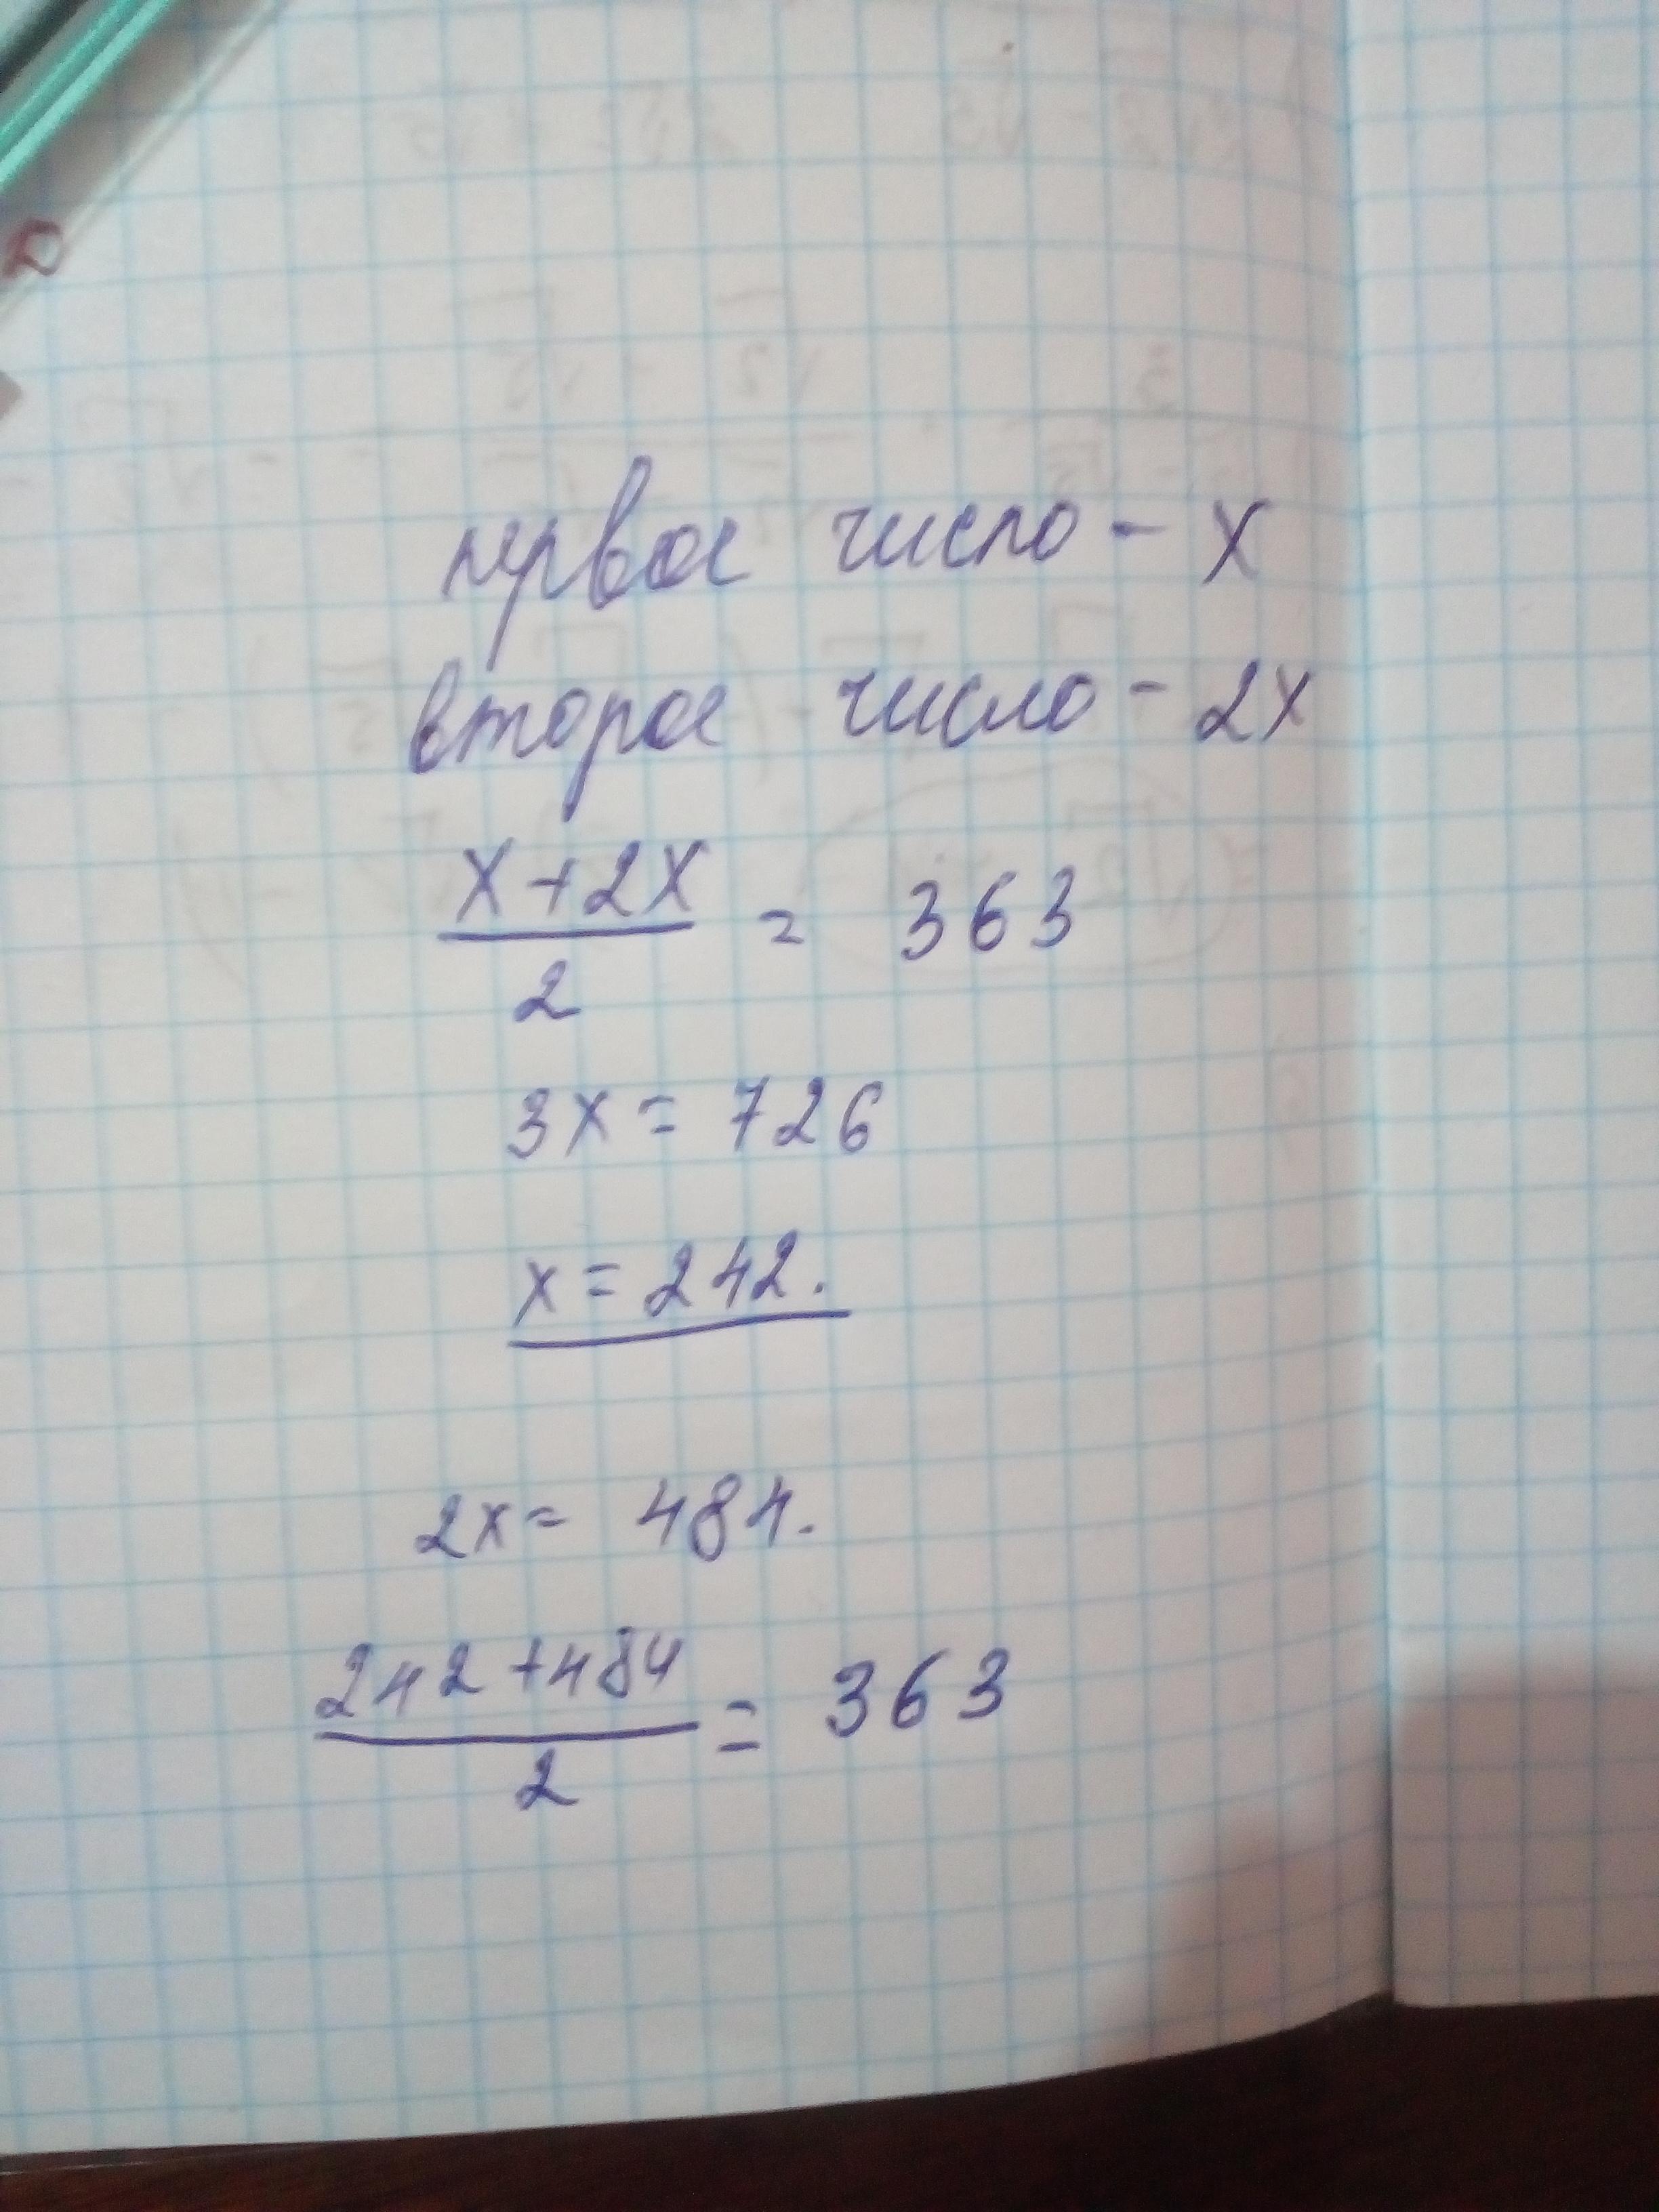 первое число - х
второе число - 2х
х+2х / 2 = 363
3х = 726
х = 242.
2х = 484.
242+484 / 2 = 363